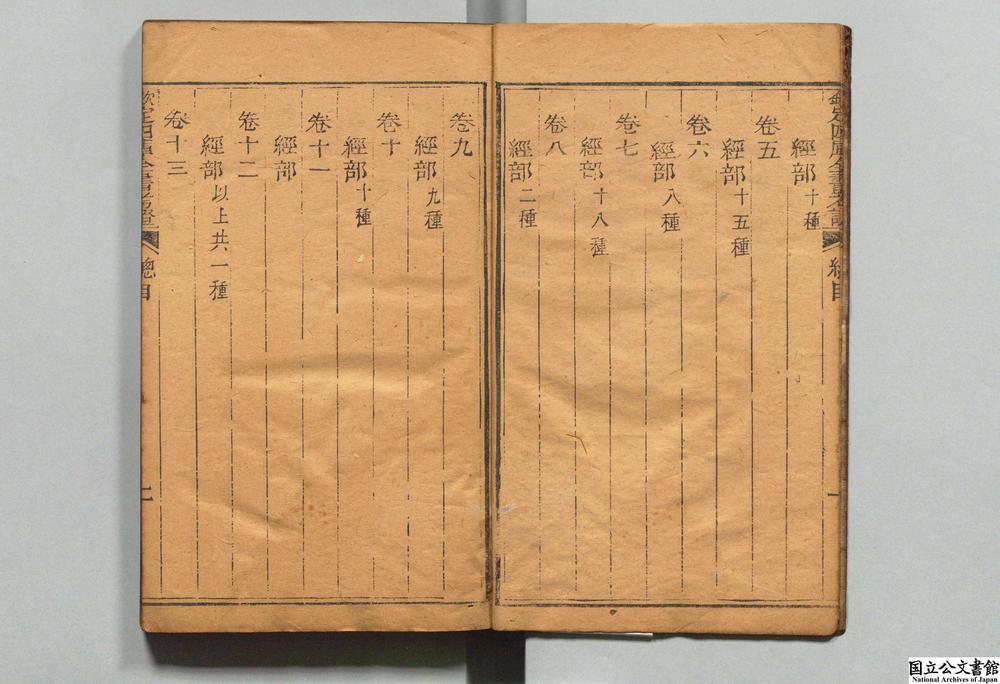 欽定四庫全書考證 總目 一
經部十種
卷五
經部十五種
卷六
經部八種
卷七
經部十八種
卷八
經部二種
卷九
經部九種
卷十
經部十種
卷十一
經部
卷十二
經部以上共一種
卷十三
欽定四庫全書考證 總目 二
国立公文書館
National Archives of Japan